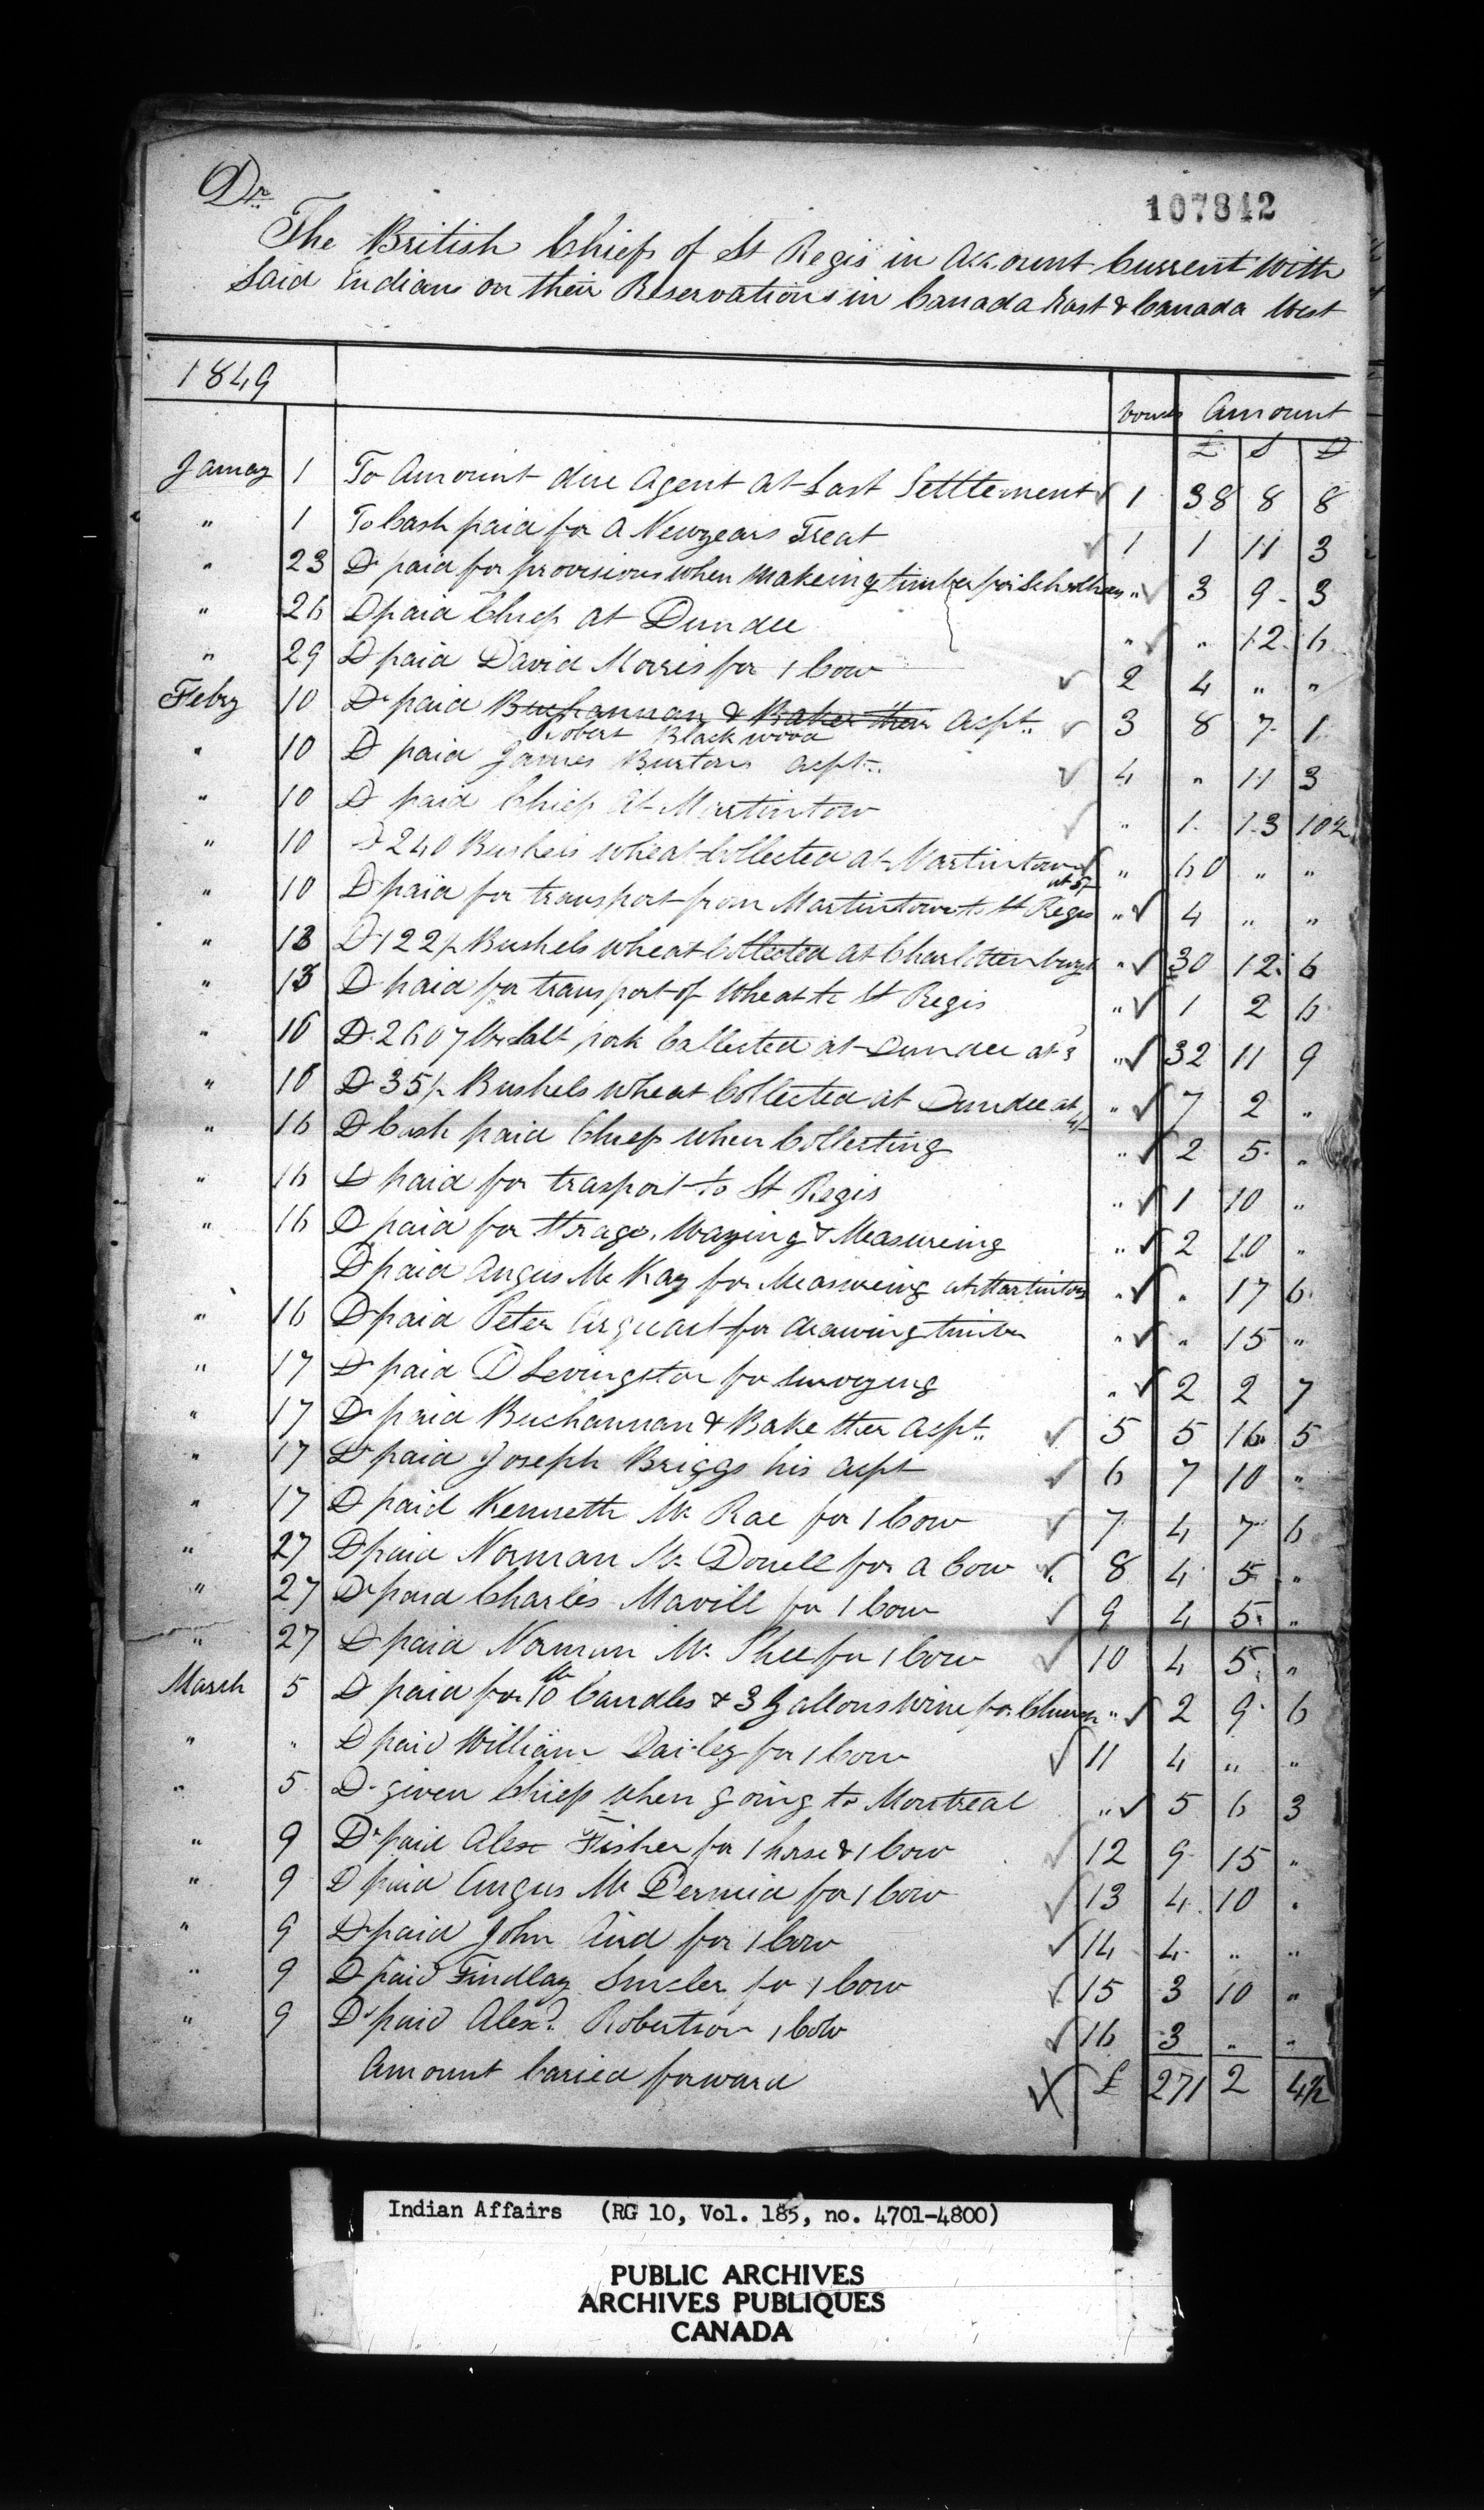 Dr
107842
The British Chiefs of St Regis in Account Current With
Said Indians on their Reservations in Canada East & Canada West
1849
Vouch Amount
£ S D
Januay 1 To Amount due Agent at Last Settlement 1 38 8 8
" 1 To Cash paid for a Newyears Treat 1 1 11 3
" 23 Do paid for provisions when makeing timber for " 3 9 3
" 26 Do paid Chiefs at Dundee " " 12 6
" 29 Do paid David Morris for 1 Cow 2 4 " "
Febry 10 Do paid Buchannan & Baker their acpt 3 8 7 1
Robert Blackwood
" 10 Do paid James Burtons acpt 4 " 11 3
" 10 Do paid Chiefs at Martintow " 1 13 10½
" 10 Do 240 Bushels wheat Collected at Martintown " 60 " "
at 5/-
" 10 Do paid for transport from Martintown to St Regis " 4 " "
" 13 Do 122½ Bushels wheat Collected at Charlottenburgh " 30 12 6
" 13 Do paid for transport of Wheat to St Regis " 1 2 6
" 16 Do 2607 lbs Salt pork Collected at Dundee at 3 " 32 11 9
" 16 Do 35½ Bushels wheat Collected at Dundee at " 7 2 "
4/-
" 16 Do Cash paid Chiefs when Collecting " 2 5 "
" 16 Do paid for trasport to St Regis " 1 10 "
" 16 Do paid for Strage, Waying & Measureing " 2 10 "
Do paid Angus Mc Kay for Measureing at Martintown " " 17 6
" 16 Do paid Peter for drawing timber " " 15 "
" 17 Do paid D Levingston for Surveying " 2 2 7
" 17 Do paid Buchannan & Bake ther acpt 5 5 16 5
" 17 Do paid Joseph Briggs his acpt 6 7 10 "
" 17 Do paid Kenneth Mc Rae for 1 Cow 7 4 7 6
" 27 Do paid Norman Mc Donell for a Cow 8 4 5 "
" 27 Do paid Charles Mavill for 1 Cow 9 4 5 "
" 27 Do paid Norman Mc Phee for 1 Cow 10 4 5 "
March 5 Do paid for 10 lb Candles & 3 gallons wine for Church " 2 9 6
" " Do paid William Dailey for 1 Cow 11 4 " "
" 5 Do given Chiefs when going to Montreal " 5 6 3
" 9 Do paid Alex Fisher for 1 horse & 1 Cow 12 9 15 "
" 9 Do paid Angus Mc Dermid for 1 Cow 13 4 10 "
" 9 Do paid John Aird for 1 Cow 14 4 " "
" 9 Do paid Findlay for 1 Cow 15 3 10 "
" 9 Do paid Alexr Robertson 1 Cow 16 3 " "
Amount Caried forward £ 271 2 4½
Indian Affairs (RG 10, Vol. 185, no. 4701-4800)
PUBLIC ARCHIVES
ARCHIVES PUBLIQUES
CANADA